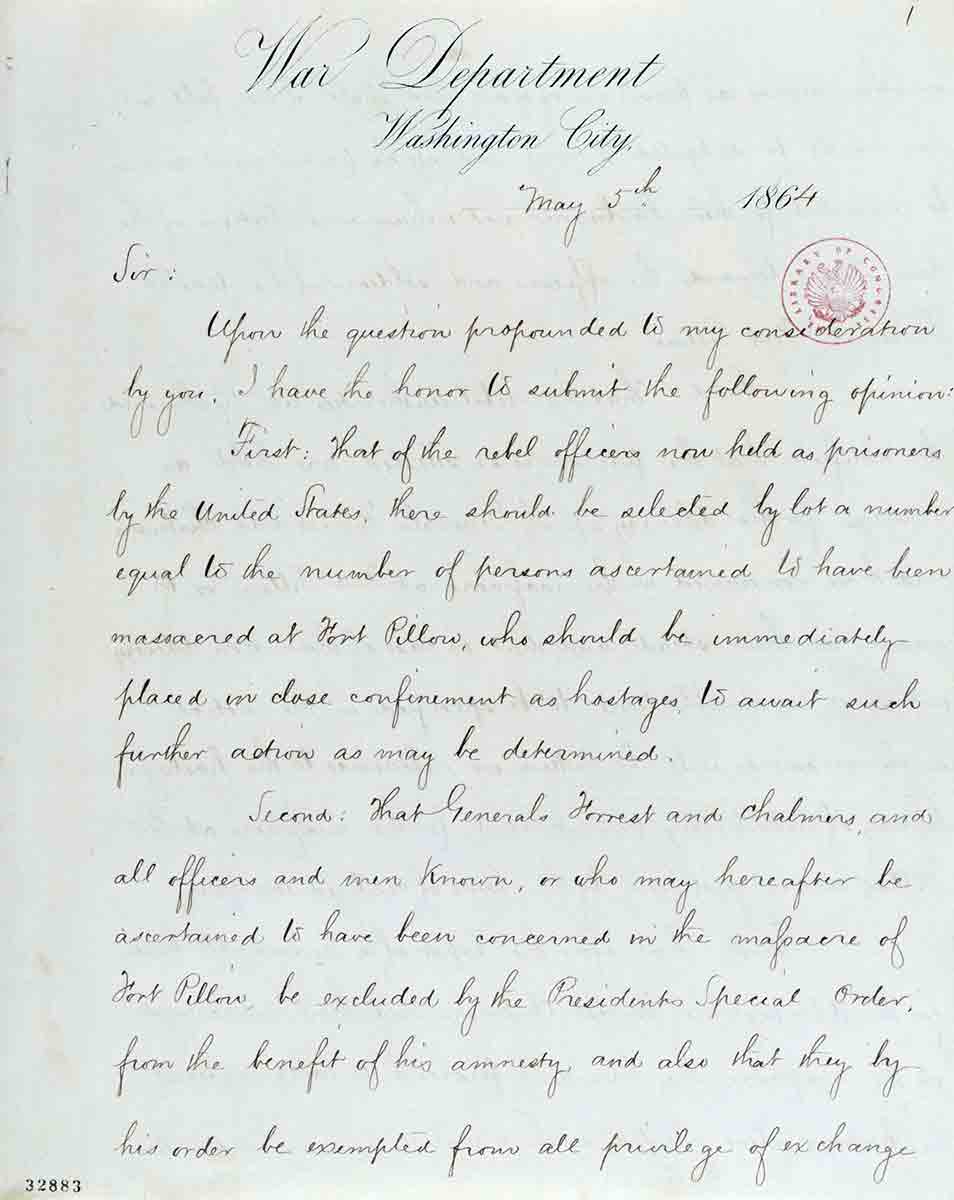 1
War Department
Washington City,
May 5th 1864
LIBRARY OF CONGRESS
Sir:
Upon the question propounded to my consideration
by you, I have the honor to submit the following opinion:
First: That of the rebel officers now held as prisoners
by the United States, there should be selected by lot a number
equal to the number of persons ascertained to have been
massacred at Fort Pillow, who should be immediately
placed in close confinement as hostages, to await such
further action as may be determined.
Second: That Generals Forrest and Chalmers, and
all officers and men known, or who may hereafter be
ascertained to have been concerned in the massacre of
Fort Pillow, be excluded by the Presidents Special Order,
from the benefit of his amnesty, and also that they by
his order be exempted from all privilege of exchange
32883